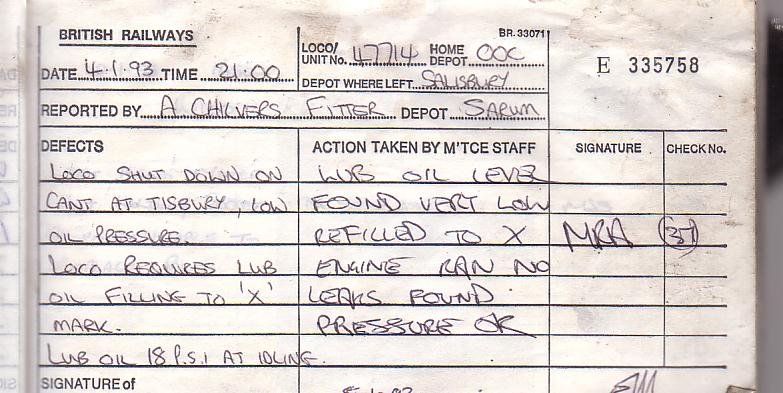 BRITISH RAILWAYS
BR. 33071
LOCO/ UNIT No. 47714 HOME DEPOT OOC
E 335758
DATE 4.1.93 TIME 21.00
DEPOT WHERE LEFT SALISBURY
REPORTED BY A CHILVERS FITTER DEPOT SARUM
DEFECTS ACTION TAKEN BY M'TCE STAFF SIGNATURE CHECK No.
LOCO SHUT DOWN ON LUB OIL LEVEL
CANT AT TISBURY, LOW FOUND VERY LOW
OIL PRESSURE. REFILLED TO X MRA 37
LOCO REQUIRES LUB ENGINE RAN NO
OIL FILLING TO 'X' LEAKS FOUND
MARK. PRESSURE OK
LUB OIL 18 P.S.I AT IDLING.
SIGNATURE of